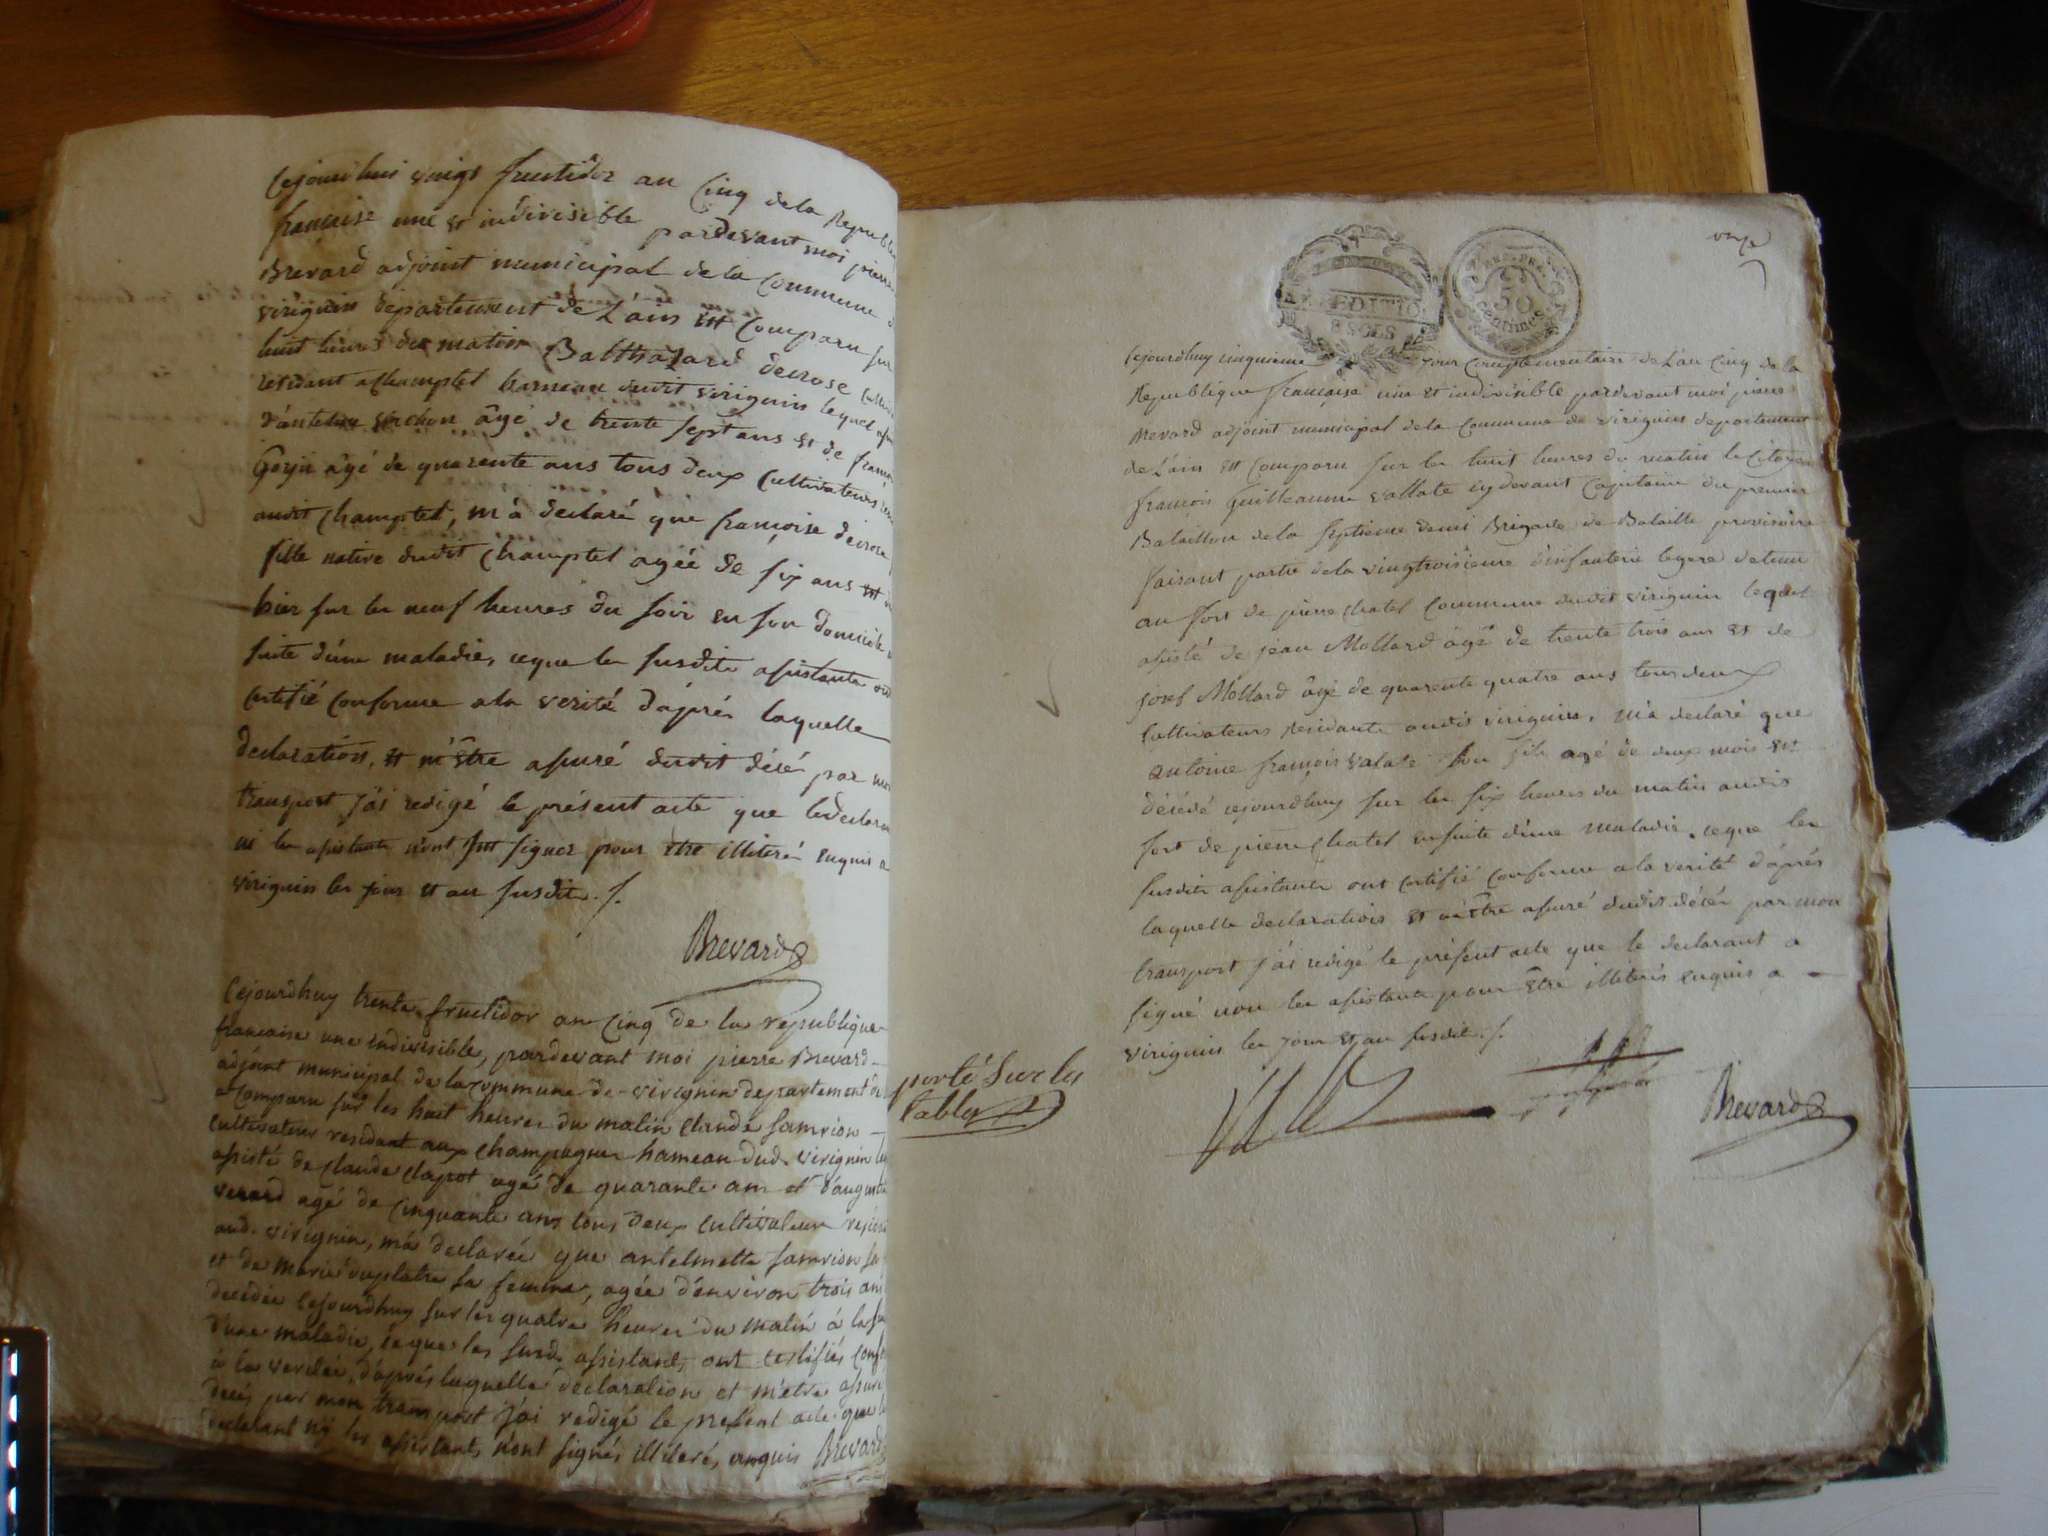 Cejourdhui vingt fructidor an Cinq dela Republi
francaise une et indivisible pardevant moi pierre
Brevard adjoint municipal de la Commune d
virignin departement de L'ain est Comparu sur
huit heures du matin Balthazard decrose Cultiv
residant a Champtel hameau dudit virignin lequel assi
d'antelme sochon âgé de trente sept ans et de francoi
Goyji âgé de quarente ans tous deux Cultivateurs
audit Champtel, m'a declaré que francoise decrose
fille native dudit Champtel agée de six ans est
hier sur les neuf heures du soir en son domicile
suite d'une maladie, ceque les susdits assistants ont
Certifié Conforme a la verité d'aprés laquelle
declaration, et m'être assuré dudit décé par mon
transport j'ai redigé le présent acte que ledeclara
ni les assistants n'ont sut signer pour etre illiterés enquis a
virignin les jour et an susdits ./.
Brevard
Cejourdhuy trente fructidor an Cinq de la republique
francaise une indivisible, pardevant moi pierre Brevard
adjoint municipal de la commune de virignin departement
a Comparu sur les huit heures du matin Claude samrion
Cultivateur residant aux champagnes hameau dud. virignin
assisté de Claude Clapot agé de quarante ans et d'augustin
verard agé de Cinquante ans tous deux cultivateurs resid
aud. virignin, m'a declarée que antelmette samrion sa
et de marie duplatre sa femme, agée d'environ trois ans
decédée Cejourdhuy sur les quatre heures du matin à la su
d'une maladie, ceque les susd. assistants, ont certifiés conf
à la verité, d'après laquelle declaration et m'etre assuré
decés par mon transport j'ai redigé le present acte que le
declarant n'y les assistants, n'ont signés illiterés, enquis Brevard
onze
EXPEDITIO
8 SOLS
50
Centimes
Cejourdhuy cinquieme jour Complementaire de L'an Cinq de la
Republique francaise une et indivisible pardevant moi pierre
Brevard adjoint municipal dela Commune de virignin departement
de L'ain est Comparu sur les huit heures du matin le Citoyen
francois Guilleaume vallate cydevant Capitaine du premier
Bataillon de la septieme demi Brigade de Bataille provisoire
faisant partie dela vingtroisieme d'infanterie legere detenu
au fort de pierre Chatel Commune dudit virignin lequel
assisté de jean Mollard âgé de trente trois ans et de
josef Mollard âgé de quarente quatre ans tous deux
Cultivateurs residants audit virignin, m'a declaré que
antoine francois valate son fils agé de deux mois est
décédé cejourdhuy sur les six heures du matin audit
fort de pierre Chatel ensuite d'une maladie, ceque les
susdits assistants ont certifié Conforme a la verité d'áprés
laquelle declaration et m'être assuré dudit décés par mon
transport j'ai redigé le présent acte que le declarant a
signé non les assistants pour être illiterés enquis a
virignin les jour et an susdit ./.
porté sur la
table
Brevard